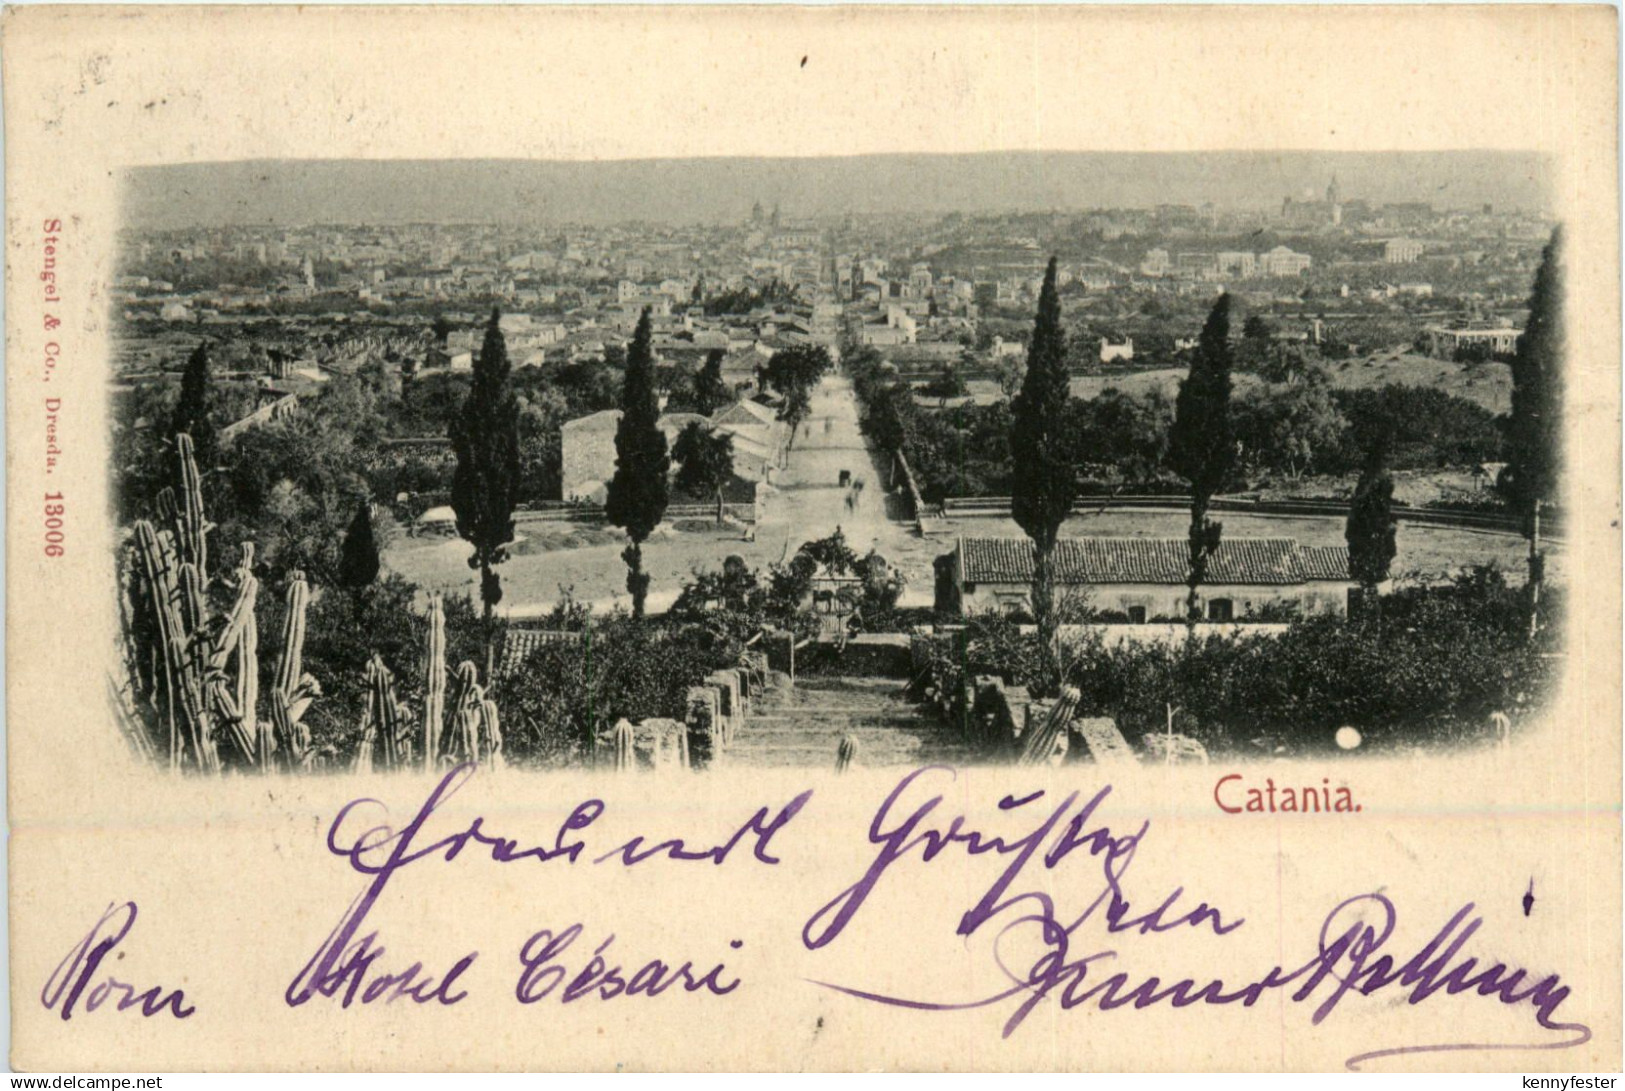 Stengel & Co., Dresda. 13006
Catania.
Freundl Grüße
Rom Hotel Césari
www.delcampe.net
kennyfester